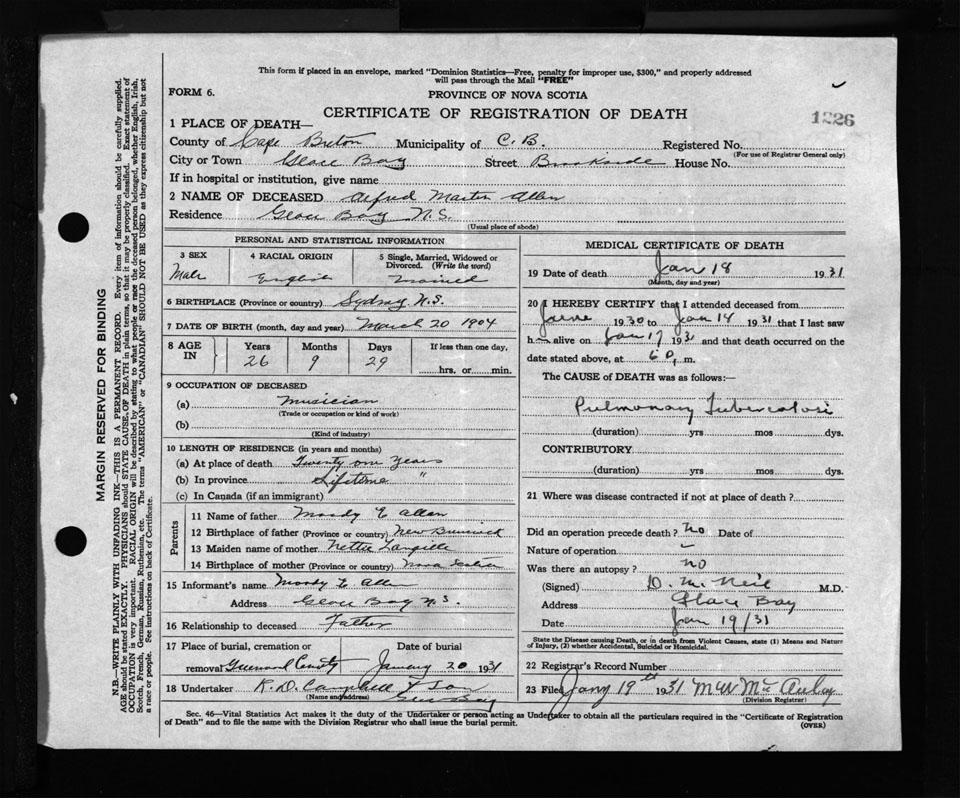 This form if placed in an envelope, marked "Dominion Statistics—Free, penalty for improper use, $300," and properly addressed
will pass through the Mail "FREE"
FORM 6.
PROVINCE OF NOVA SCOTIA
CERTIFICATE OF REGISTRATION OF DEATH
1326
1 PLACE OF DEATH—
County of Cape Breton Municipality of C. B. Registered No.
(For use of Registrar General only)
City or Town Glace Bay Street Brookside House No.
If in hospital or institution, give name
2 NAME OF DECEASED Alfred Martin Allen
Residence Glace Bay N.S.
(Usual place of abode)
PERSONAL AND STATISTICAL INFORMATION
3 SEX 4 RACIAL ORIGIN 5 Single, Married, Widowed or
Divorced. (Write the word)
Male English Married
6 BIRTHPLACE (Province or country) Sydney N.S.
7 DATE OF BIRTH (month, day and year) March 20 1904
8 AGE IN Years Months Days If less than one day,
26 9 29 hrs. or min.
9 OCCUPATION OF DECEASED
(a) musician
(Trade or occupation or kind of work)
(b)
(Kind of industry)
10 LENGTH OF RESIDENCE (in years and months)
(a) At place of death Twenty one years
(b) In province Lifetime "
(c) In Canada (if an immigrant)
Parents
11 Name of father Moody E Allen
12 Birthplace of father (Province or country) New Brunswick
13 Maiden name of mother Nettie Langille
14 Birthplace of mother (Province or country) Nova Scotia
15 Informant's name Moody E Allen
Address Glace Bay N.S.
16 Relationship to deceased Father
17 Place of burial, cremation or Date of burial
removal Greenwood January 20 1931
18 Undertaker R. D. Campbell & Son
(Name and address) Glace Bay
MEDICAL CERTIFICATE OF DEATH
19 Date of death Jan 18 1931
(Month, day and year)
20 I HEREBY CERTIFY that I attended deceased from
June 1930 to Jan 14 1931 that I last saw
h alive on Jan 17 1931 and that death occurred on the
date stated above, at 6 p. m.
The CAUSE of DEATH was as follows:—
Pulmonary Tuberculosis
(duration) yrs mos dys.
CONTRIBUTORY
(duration) yrs mos dys.
21 Where was disease contracted if not at place of death?
Did an operation precede death? no Date of
Nature of operation
Was there an autopsy? no
(Signed) D. McNeil M.D.
Address Glace Bay
Date Jan 19/31
State the Disease causing Death, or in death from Violent Causes, state (1) Means and Nature
of Injury, (2) whether Accidental, Suicidal or Homicidal.
22 Registrar's Record Number
23 Filed Jany 19th 1931 McAulay
(Division Registrar)
Sec. 46—Vital Statistics Act makes it the duty of the Undertaker or person acting as Undertaker to obtain all the particulars required in the "Certificate of Registration
of Death" and to file the same with the Division Registrar who shall issue the burial permit.
(OVER)
MARGIN RESERVED FOR BINDING
N.B.—WRITE PLAINLY WITH UNFADING INK—THIS IS A PERMANENT RECORD. Every item of information should be carefully supplied.
AGE should be stated EXACTLY. PHYSICIANS should STATE CAUSE OF DEATH in plain terms, so that it may be properly classified. Exact statement of
OCCUPATION is very important. RACIAL ORIGIN will be described by stating to what people or race the deceased person belonged, whether English, Irish,
Scotch, French, German, Russian, Ruthenian, etc. The terms "AMERICAN" or "CANADIAN" SHOULD NOT BE USED as they express citizenship but not
a race or people. See instructions on back of Certificate.